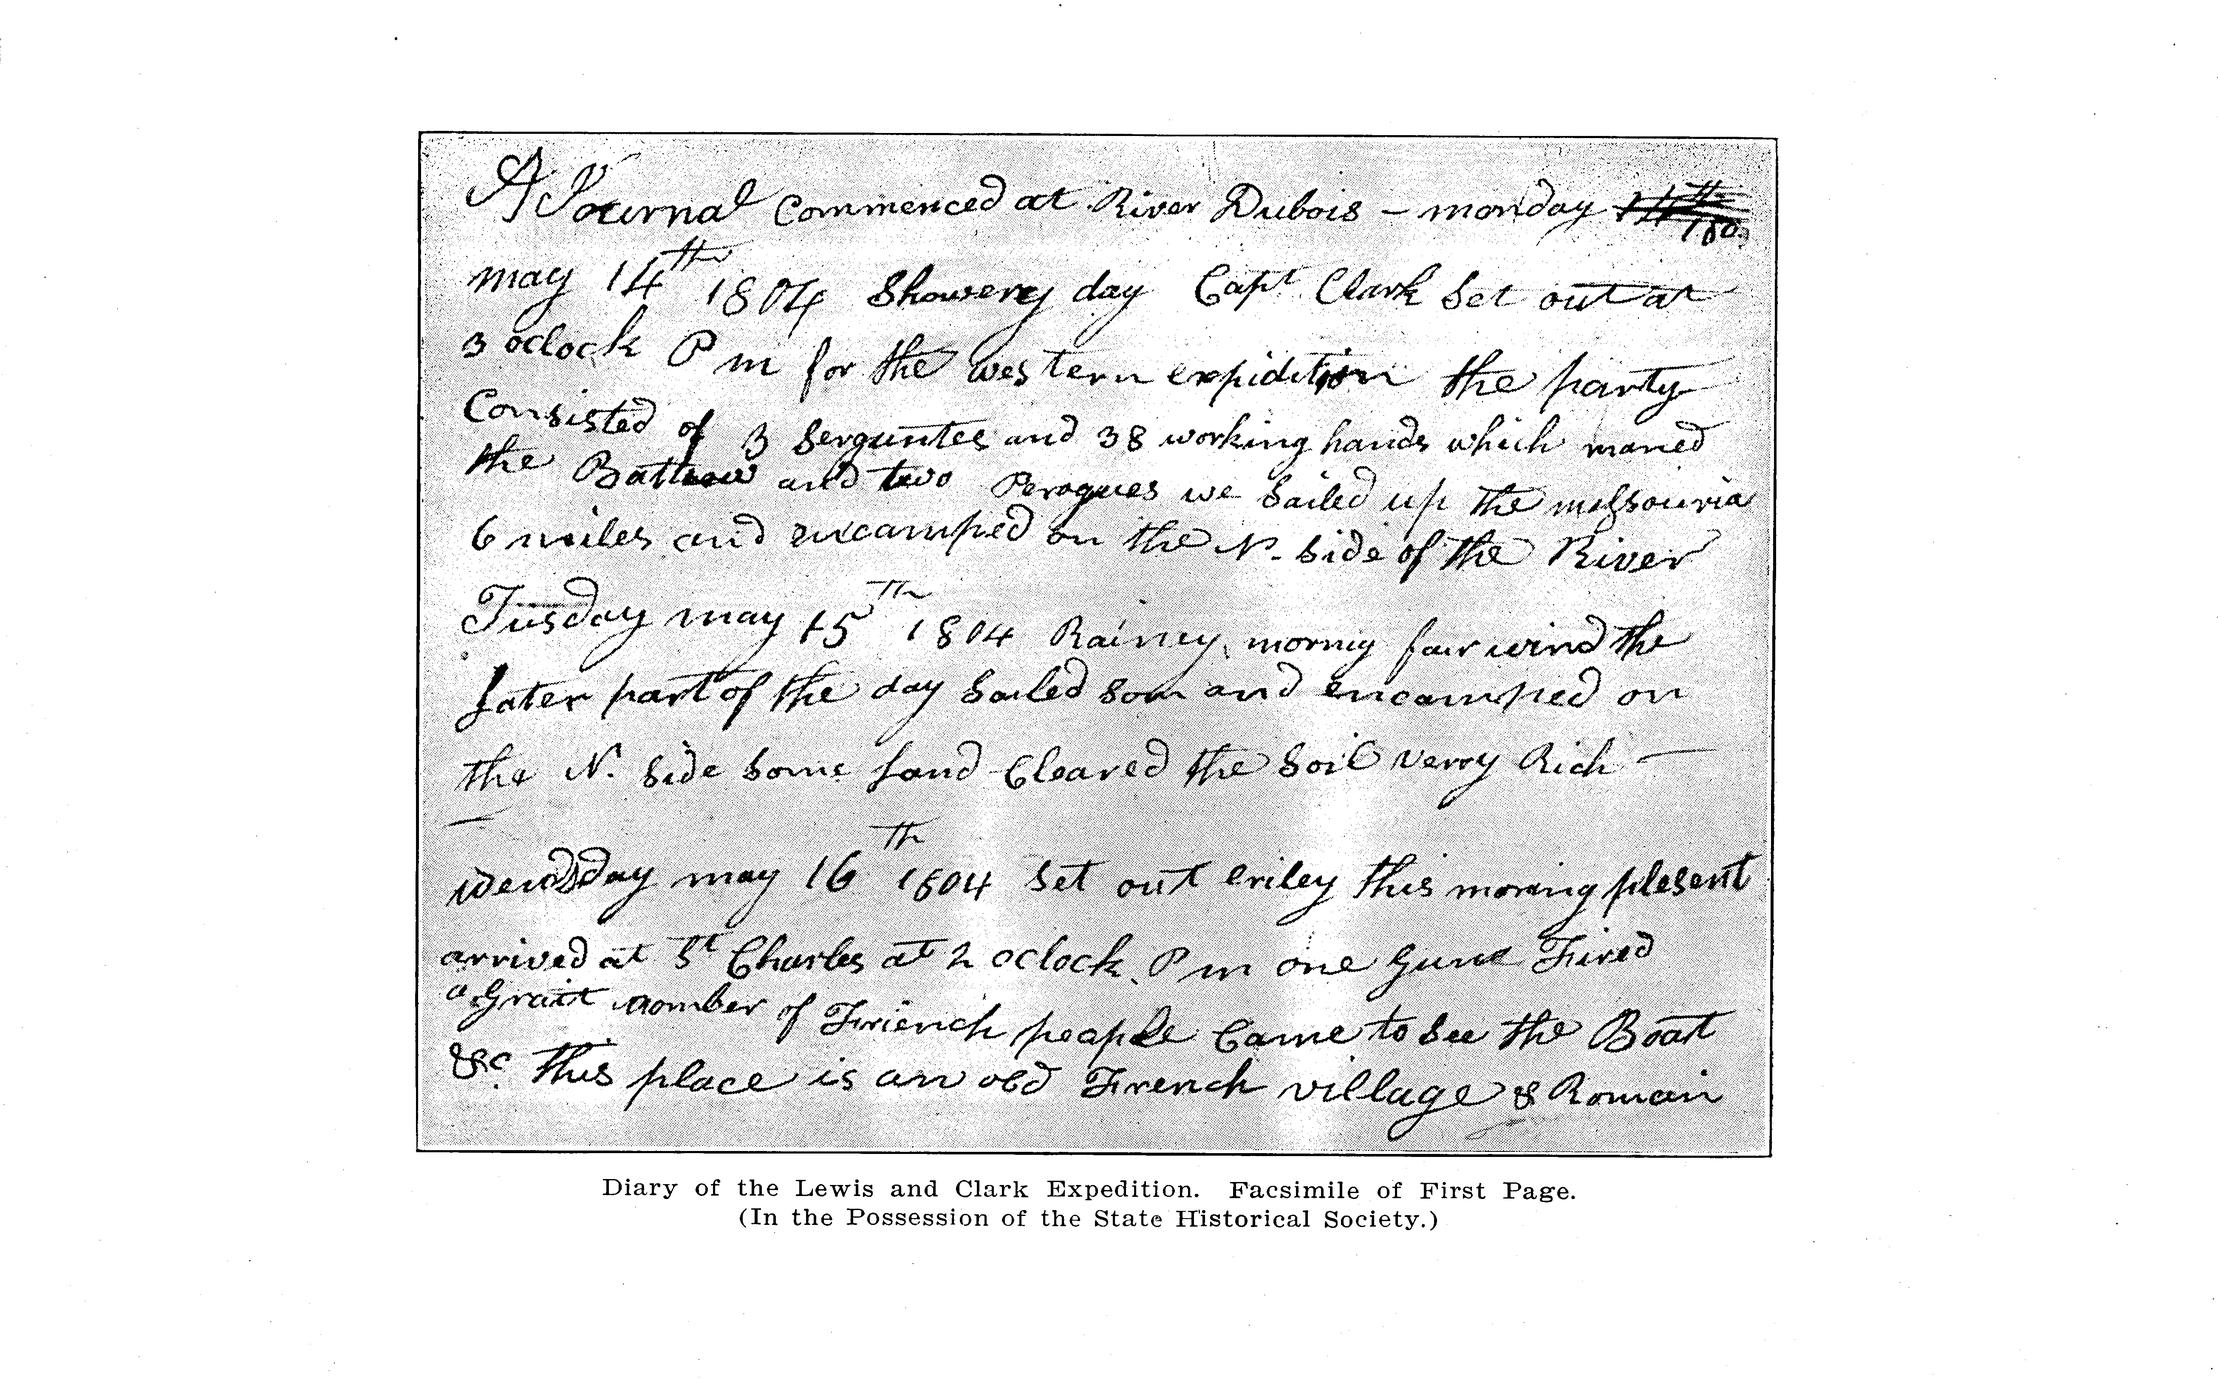 A Journal commenced at River Dubois – monday 14th 180
may 14th 1804 Showery day Capt Clark Set out at
3 oclock P m for the western expidition the party
Consisted of 3 Serguntes and 38 working hands which maned
the Batteow and two Perogues we Sailed up the missouria
6 miles and encamped on the N. Side of the River
Tusday may 15th 1804 Rainey, mornig fair wind the
later part of the day Sailed som and encamped on
the N. Side Some land Cleared the Soil verry Rich —
wendsday may 16th 1804 Set out eriley this moring plesent
arrived at St Charles at 2 oclock P m one Gunn Fired
a Grait nomber of Friench people Came to See the Boat
&c. this place is an old French village & Roman
Diary of the Lewis and Clark Expedition. Facsimile of First Page.
(In the Possession of the State Historical Society.)